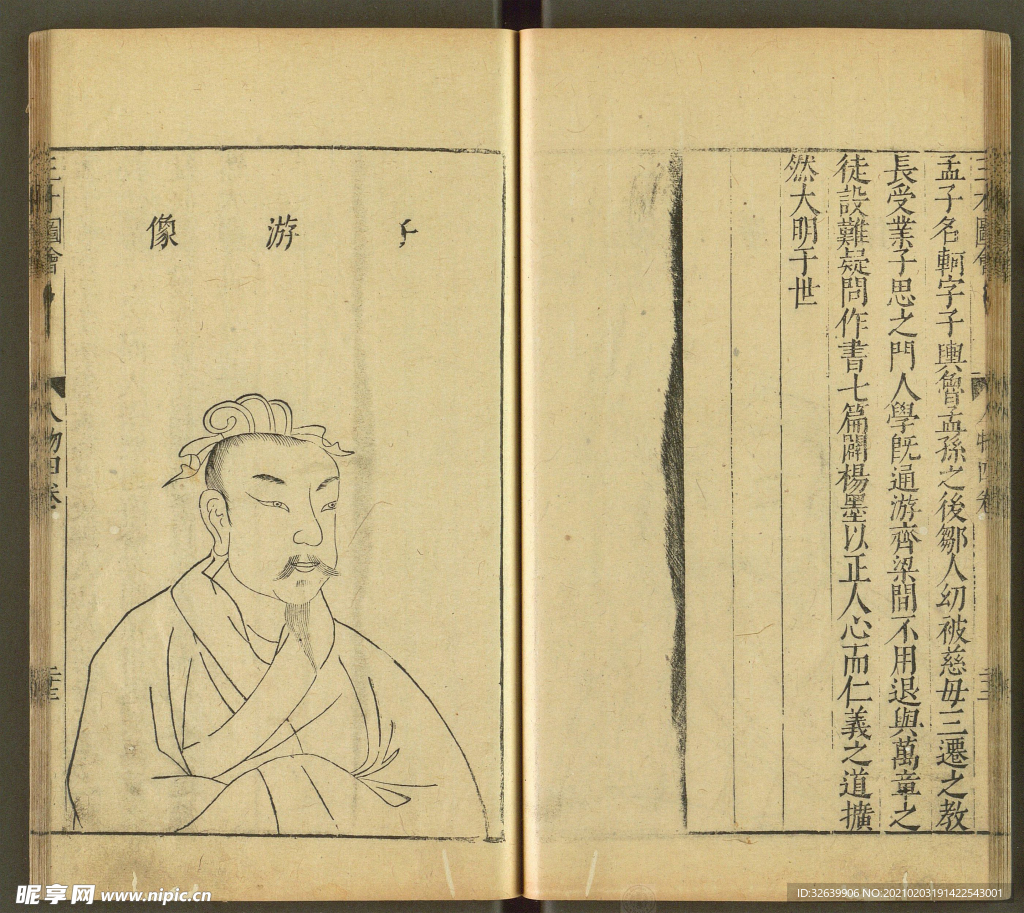 三才圖會
人物四卷
二十二
孟子名軻字子輿魯孟孫之後鄒人幼被慈母三遷之教
長受業子思之門人學既通游齊梁間不用退與萬章之
徒設難疑問作書七篇闢楊墨以正人心而仁義之道擴
然大明于世
子游像
三才圖會
人物四卷
二十三
昵享网 www.nipic.cn
ID:32639906 NO:20210203191422543001